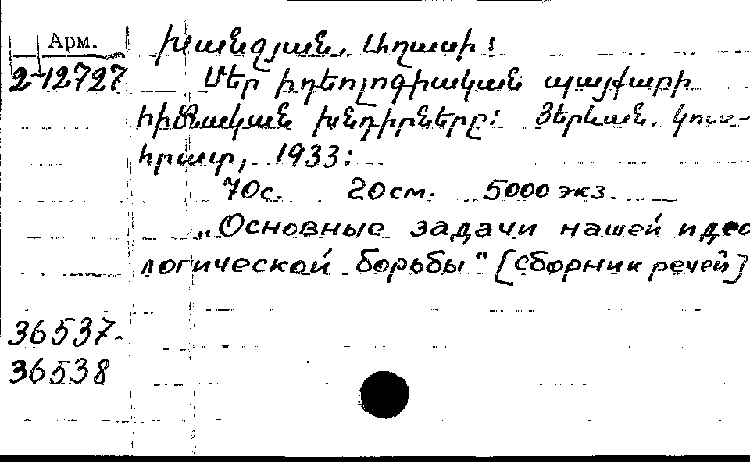 Арм.
Խանջյան, Աղասի:
2-12727
Մեր իդեոլոգիական պայքարի
հիմնական խնդիրները: Յերևան, Կուս-
հրատ, 1933:
70с. 20см. 5000 экз.
„Основные задачи нашей идео
логической борьбы" [Сборник речей]
36537-
36538